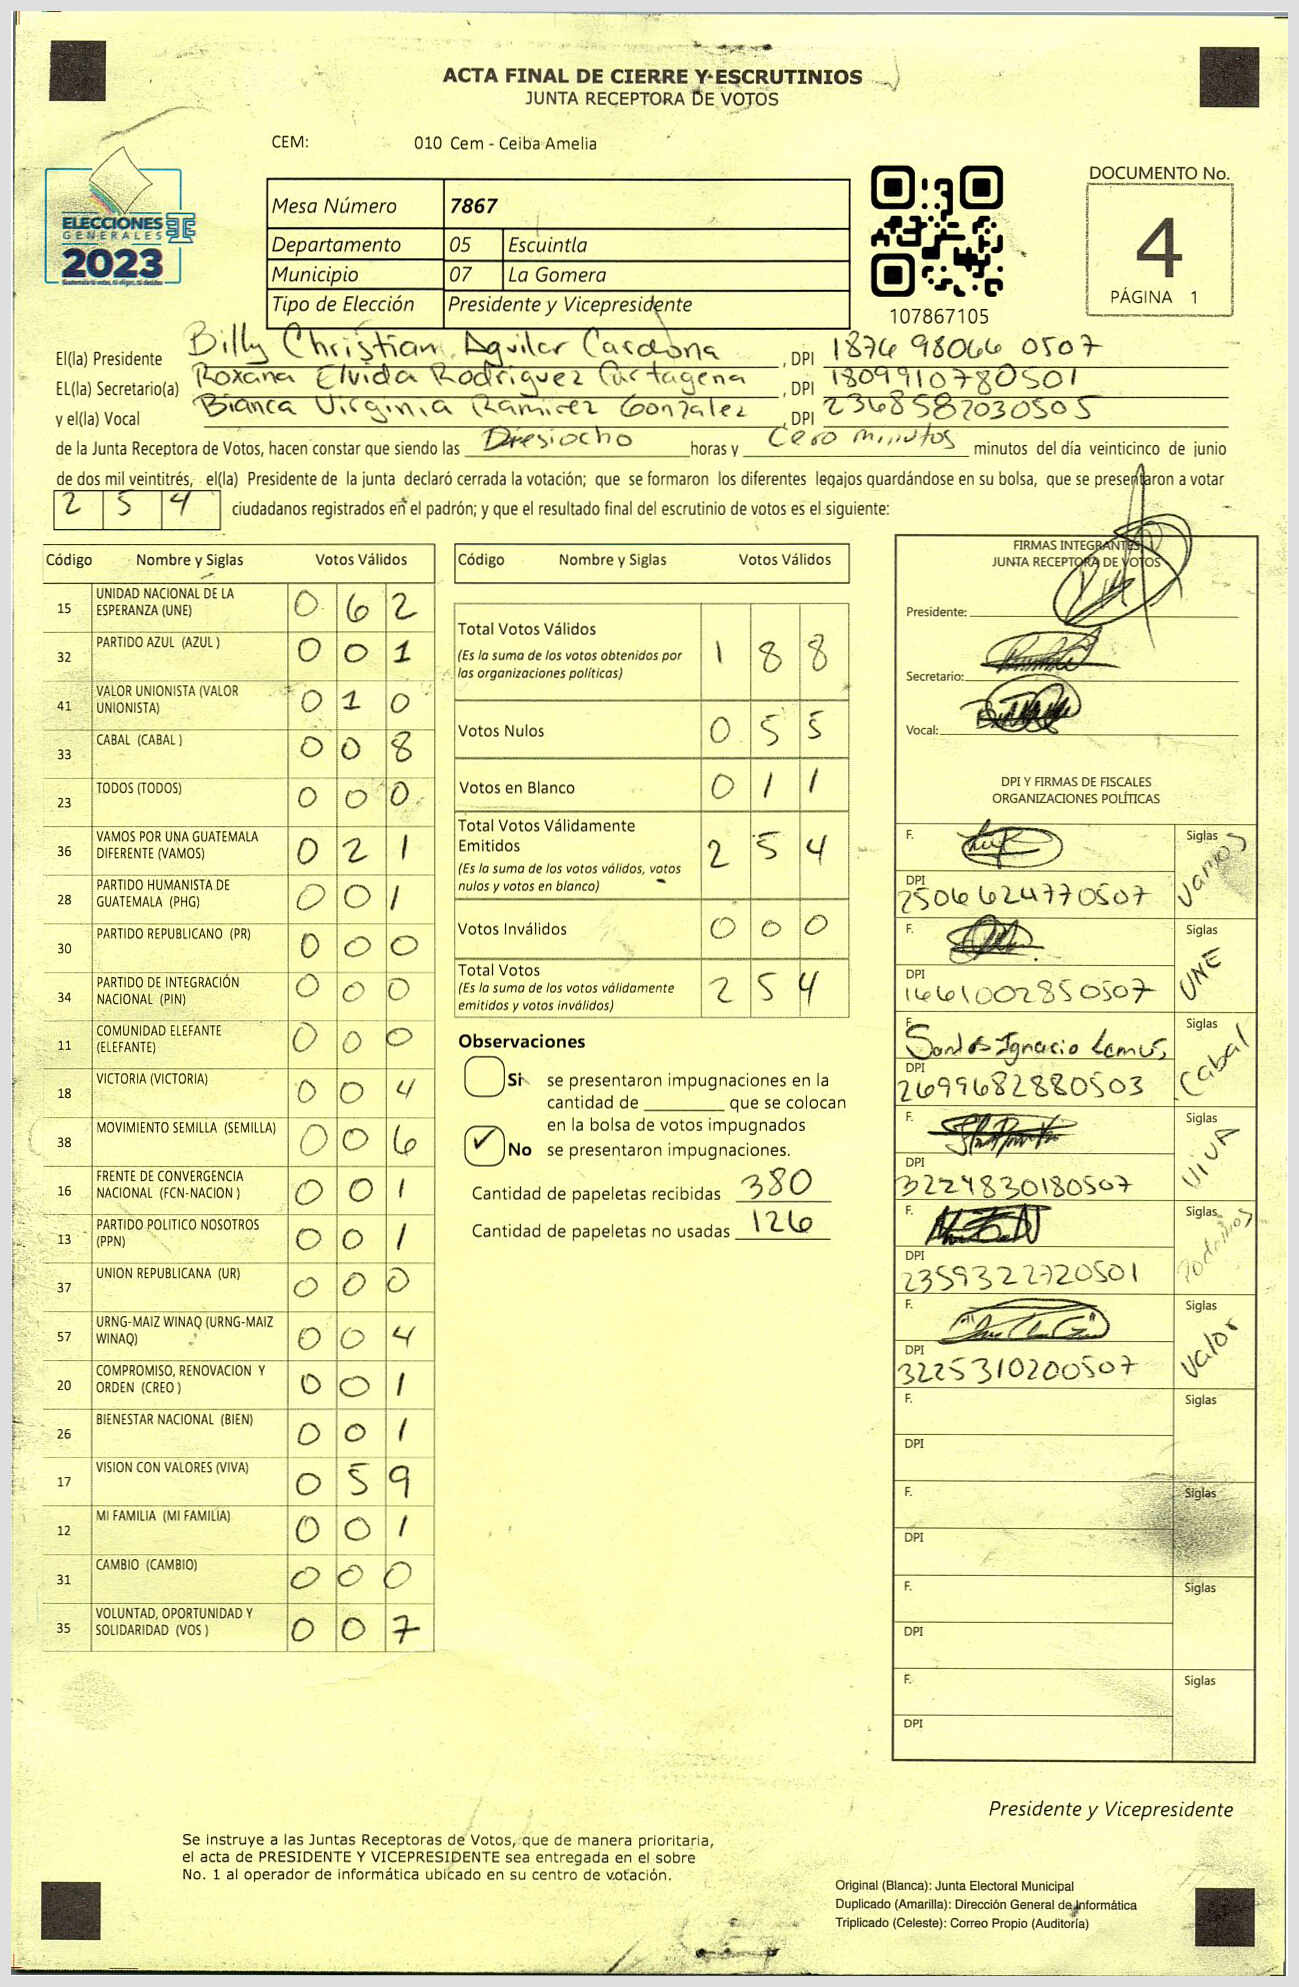 ACTA FINAL DE CIERRE Y ESCRUTINIOS
JUNTA RECEPTORA DE VOTOS
CEM: 010 Cem - Ceiba Amelia
ELECCIONES
GENERALES
2023
Mesa Número 7867
Departamento 05 Escuintla
Municipio 07 La Gomera
Tipo de Elección Presidente y Vicepresidente
107867105
DOCUMENTO No.
4
PÁGINA 1
El(la) Presidente Billy Christian Aguilar Cardona, DPI 1876 98066 0507
EL(la) Secretario(a) Roxana Elvida Rodriguez Cartagena, DPI 1809910780501
y el(la) Vocal Bianca Virginia Ramirez Gonzalez, DPI 2368587030505
de la Junta Receptora de Votos, hacen constar que siendo las Dresiocho horas y Cero minutos minutos del día veinticinco de junio
de dos mil veintitrés, el(la) Presidente de la junta declaró cerrada la votación; que se formaron los diferentes legajos quardándose en su bolsa, que se presentaron a votar
254 ciudadanos registrados en el padrón; y que el resultado final del escrutinio de votos es el siguiente:
Código Nombre y Siglas Votos Válidos
15 UNIDAD NACIONAL DE LA ESPERANZA (UNE) 0 6 2
32 PARTIDO AZUL (AZUL ) 0 0 1
41 VALOR UNIONISTA (VALOR UNIONISTA) 0 1 0
33 CABAL (CABAL ) 0 0 8
23 TODOS (TODOS) 0 0 0
36 VAMOS POR UNA GUATEMALA DIFERENTE (VAMOS) 0 2 1
28 PARTIDO HUMANISTA DE GUATEMALA (PHG) 0 0 1
30 PARTIDO REPUBLICANO (PR) 0 0 0
34 PARTIDO DE INTEGRACIÓN NACIONAL (PIN) 0 0 0
11 COMUNIDAD ELEFANTE (ELEFANTE) 0 0 0
18 VICTORIA (VICTORIA) 0 0 4
38 MOVIMIENTO SEMILLA (SEMILLA) 0 0 6
16 FRENTE DE CONVERGENCIA NACIONAL (FCN-NACION ) 0 0 1
13 PARTIDO POLITICO NOSOTROS (PPN) 0 0 1
37 UNION REPUBLICANA (UR) 0 0 0
57 URNG-MAIZ WINAQ (URNG-MAIZ WINAQ) 0 0 4
20 COMPROMISO, RENOVACION Y ORDEN (CREO ) 0 0 1
26 BIENESTAR NACIONAL (BIEN) 0 0 1
17 VISION CON VALORES (VIVA) 0 5 9
12 MI FAMILIA (MI FAMILIA) 0 0 1
31 CAMBIO (CAMBIO) 0 0 0
35 VOLUNTAD, OPORTUNIDAD Y SOLIDARIDAD (VOS ) 0 0 7
Código Nombre y Siglas Votos Válidos
Total Votos Válidos 1 8 8
(Es la suma de los votos obtenidos por
las organizaciones políticas)
Votos Nulos 0 5 5
Votos en Blanco 0 1 1
Total Votos Válidamente
Emitidos 2 5 4
(Es la suma de los votos válidos, votos
nulos y votos en blanco)
Votos Inválidos 0 0 0
Total Votos 2 5 4
(Es la suma de los votos válidamente
emitidos y votos inválidos)
Observaciones
Si se presentaron impugnaciones en la
cantidad de ________ que se colocan
en la bolsa de votos impugnados
✓ No se presentaron impugnaciones.
Cantidad de papeletas recibidas 380
Cantidad de papeletas no usadas 126
FIRMAS INTEGRANTES
JUNTA RECEPTORA DE VOTOS
Presidente:
Secretario:
Vocal:
DPI Y FIRMAS DE FISCALES
ORGANIZACIONES POLÍTICAS
F. Siglas Vamos
DPI 2506624770507
F. Siglas UNE
DPI 1661002850507
F. Santos Ignacio Lemus, Siglas Cabal
DPI 2699682880503
F. Siglas VIVA
DPI 3224830180507
F. Siglas
DPI 2359322720501
F. Siglas Valor
DPI 3225310200507
F. Siglas
DPI
F. Siglas
DPI
F. Siglas
DPI
F. Siglas
DPI
Presidente y Vicepresidente
Se instruye a las Juntas Receptoras de Votos, que de manera prioritaria,
el acta de PRESIDENTE Y VICEPRESIDENTE sea entregada en el sobre
No. 1 al operador de informática ubicado en su centro de votación.
Original (Blanca): Junta Electoral Municipal
Duplicado (Amarilla): Dirección General de Informática
Triplicado (Celeste): Correo Propio (Auditoría)